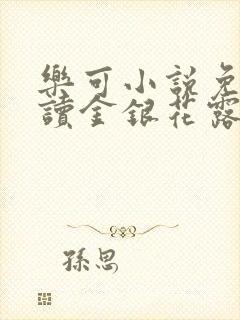 樂可小說免
讀金銀花露
孫思